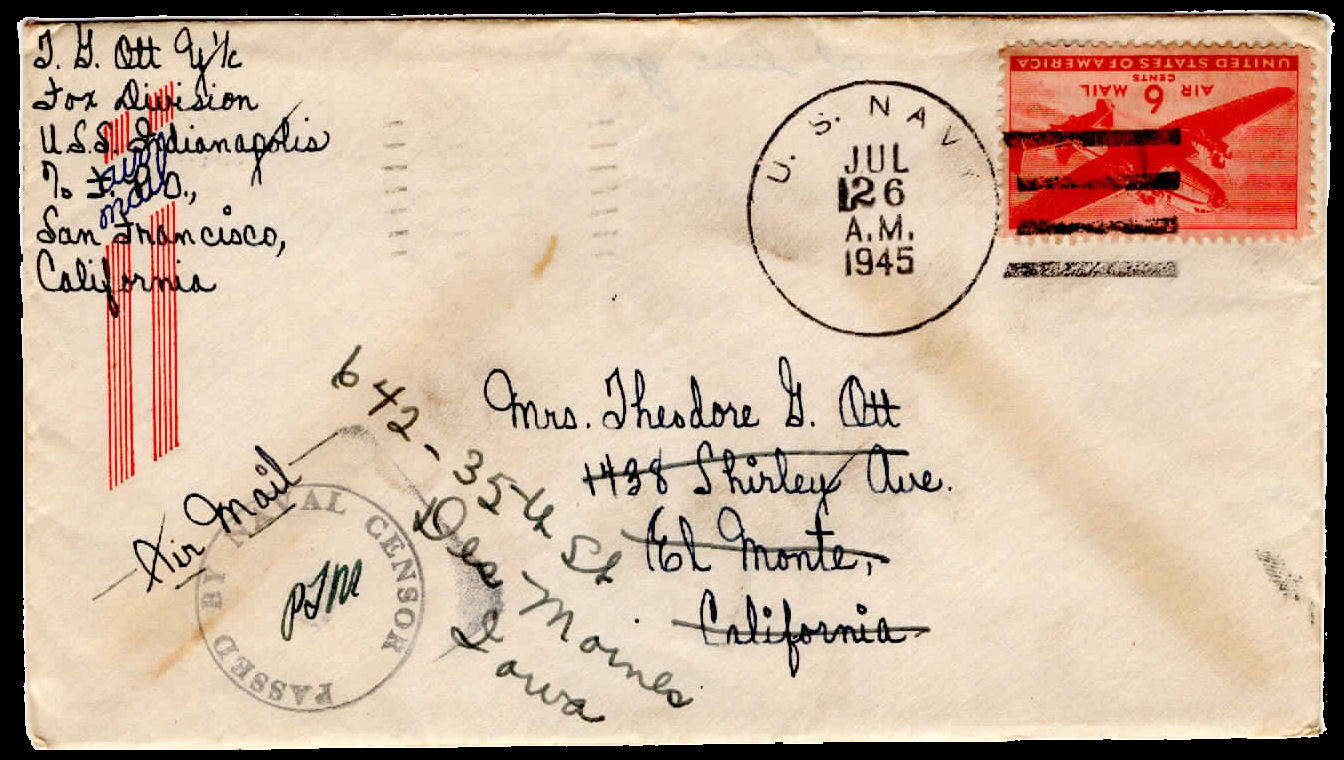 T. G. Ott Y1/c
Fox Division
U.S.S. Indianapolis
℅ F.P.O.,
San Francisco,
California
air
mail
U. S. NAVY
JUL
26
A.M.
1945
UNITED STATES OF AMERICA
6 CENTS
AIR MAIL
Mrs. Theodore G. Ott
1438 Shirley Ave.
El Monte,
California
642-35th St
Des Moines
Iowa
Air Mail
PASSED BY NAVAL CENSOR